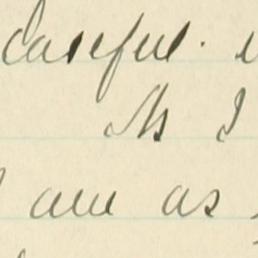 careful.
As I
are as